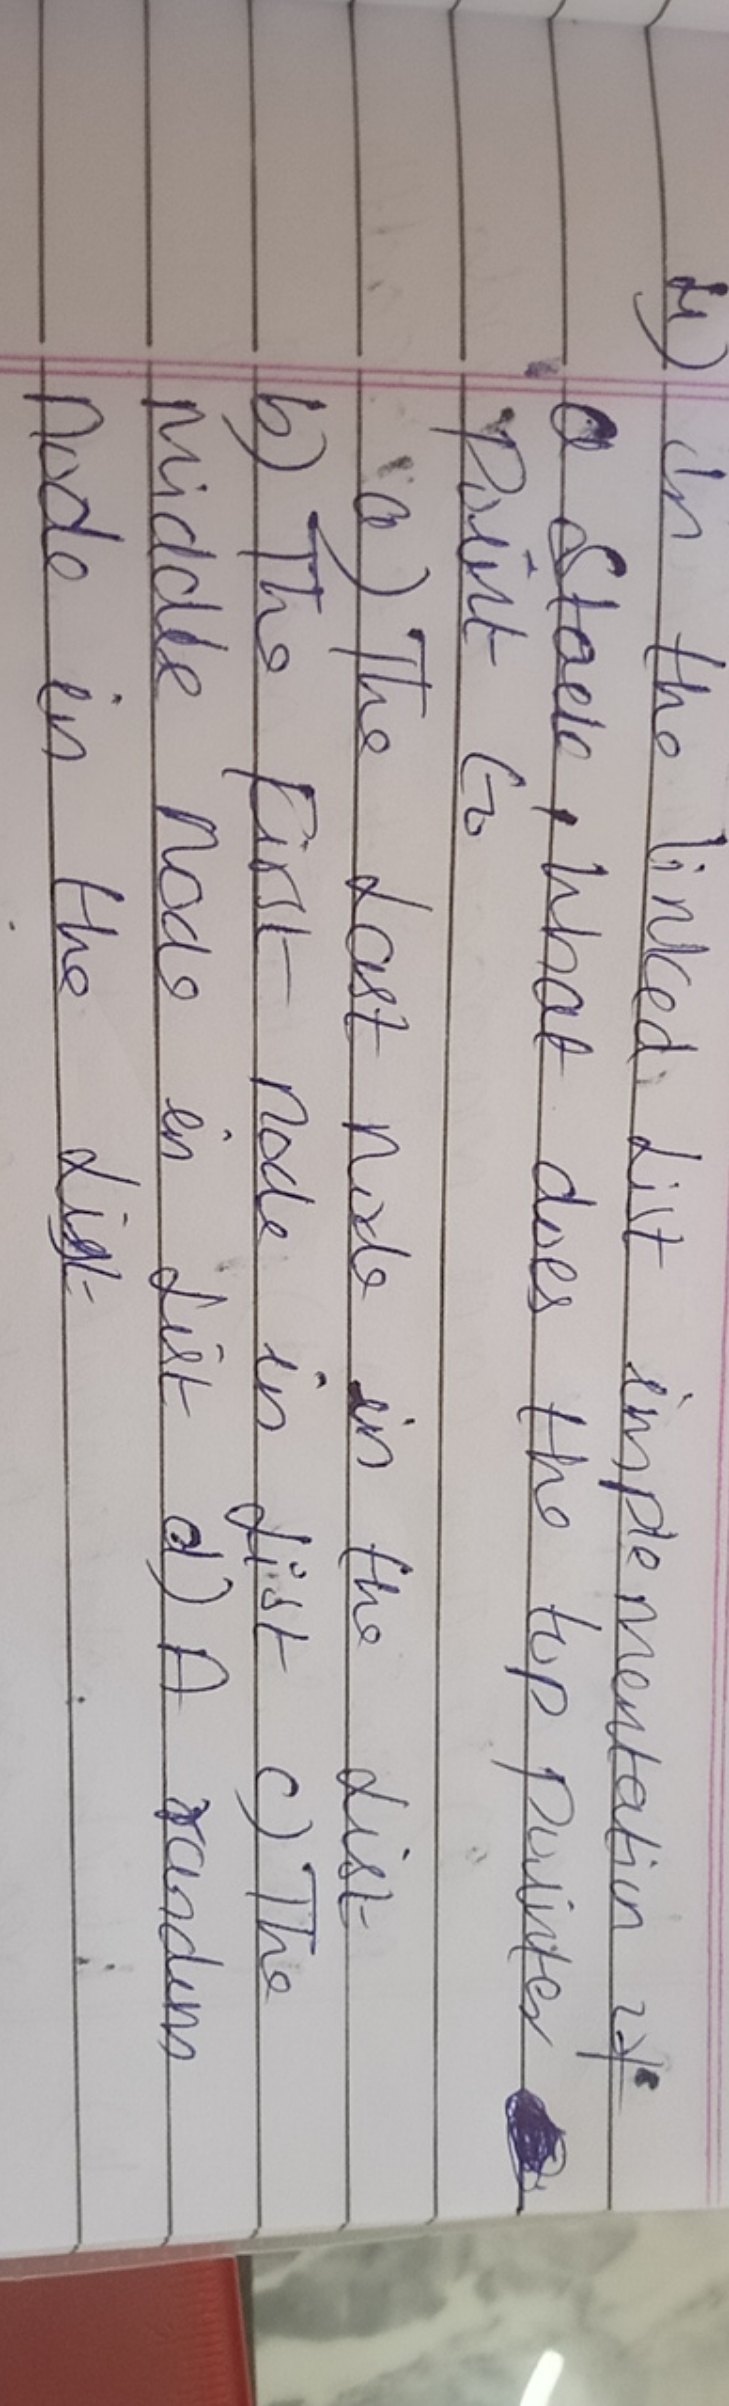 4) In the linked List implementation of
a Stack, what does the top pointer
point to
a) The Last node in the List
b) The First node in List c) The
Middle Node in List d) A random
Node in the List